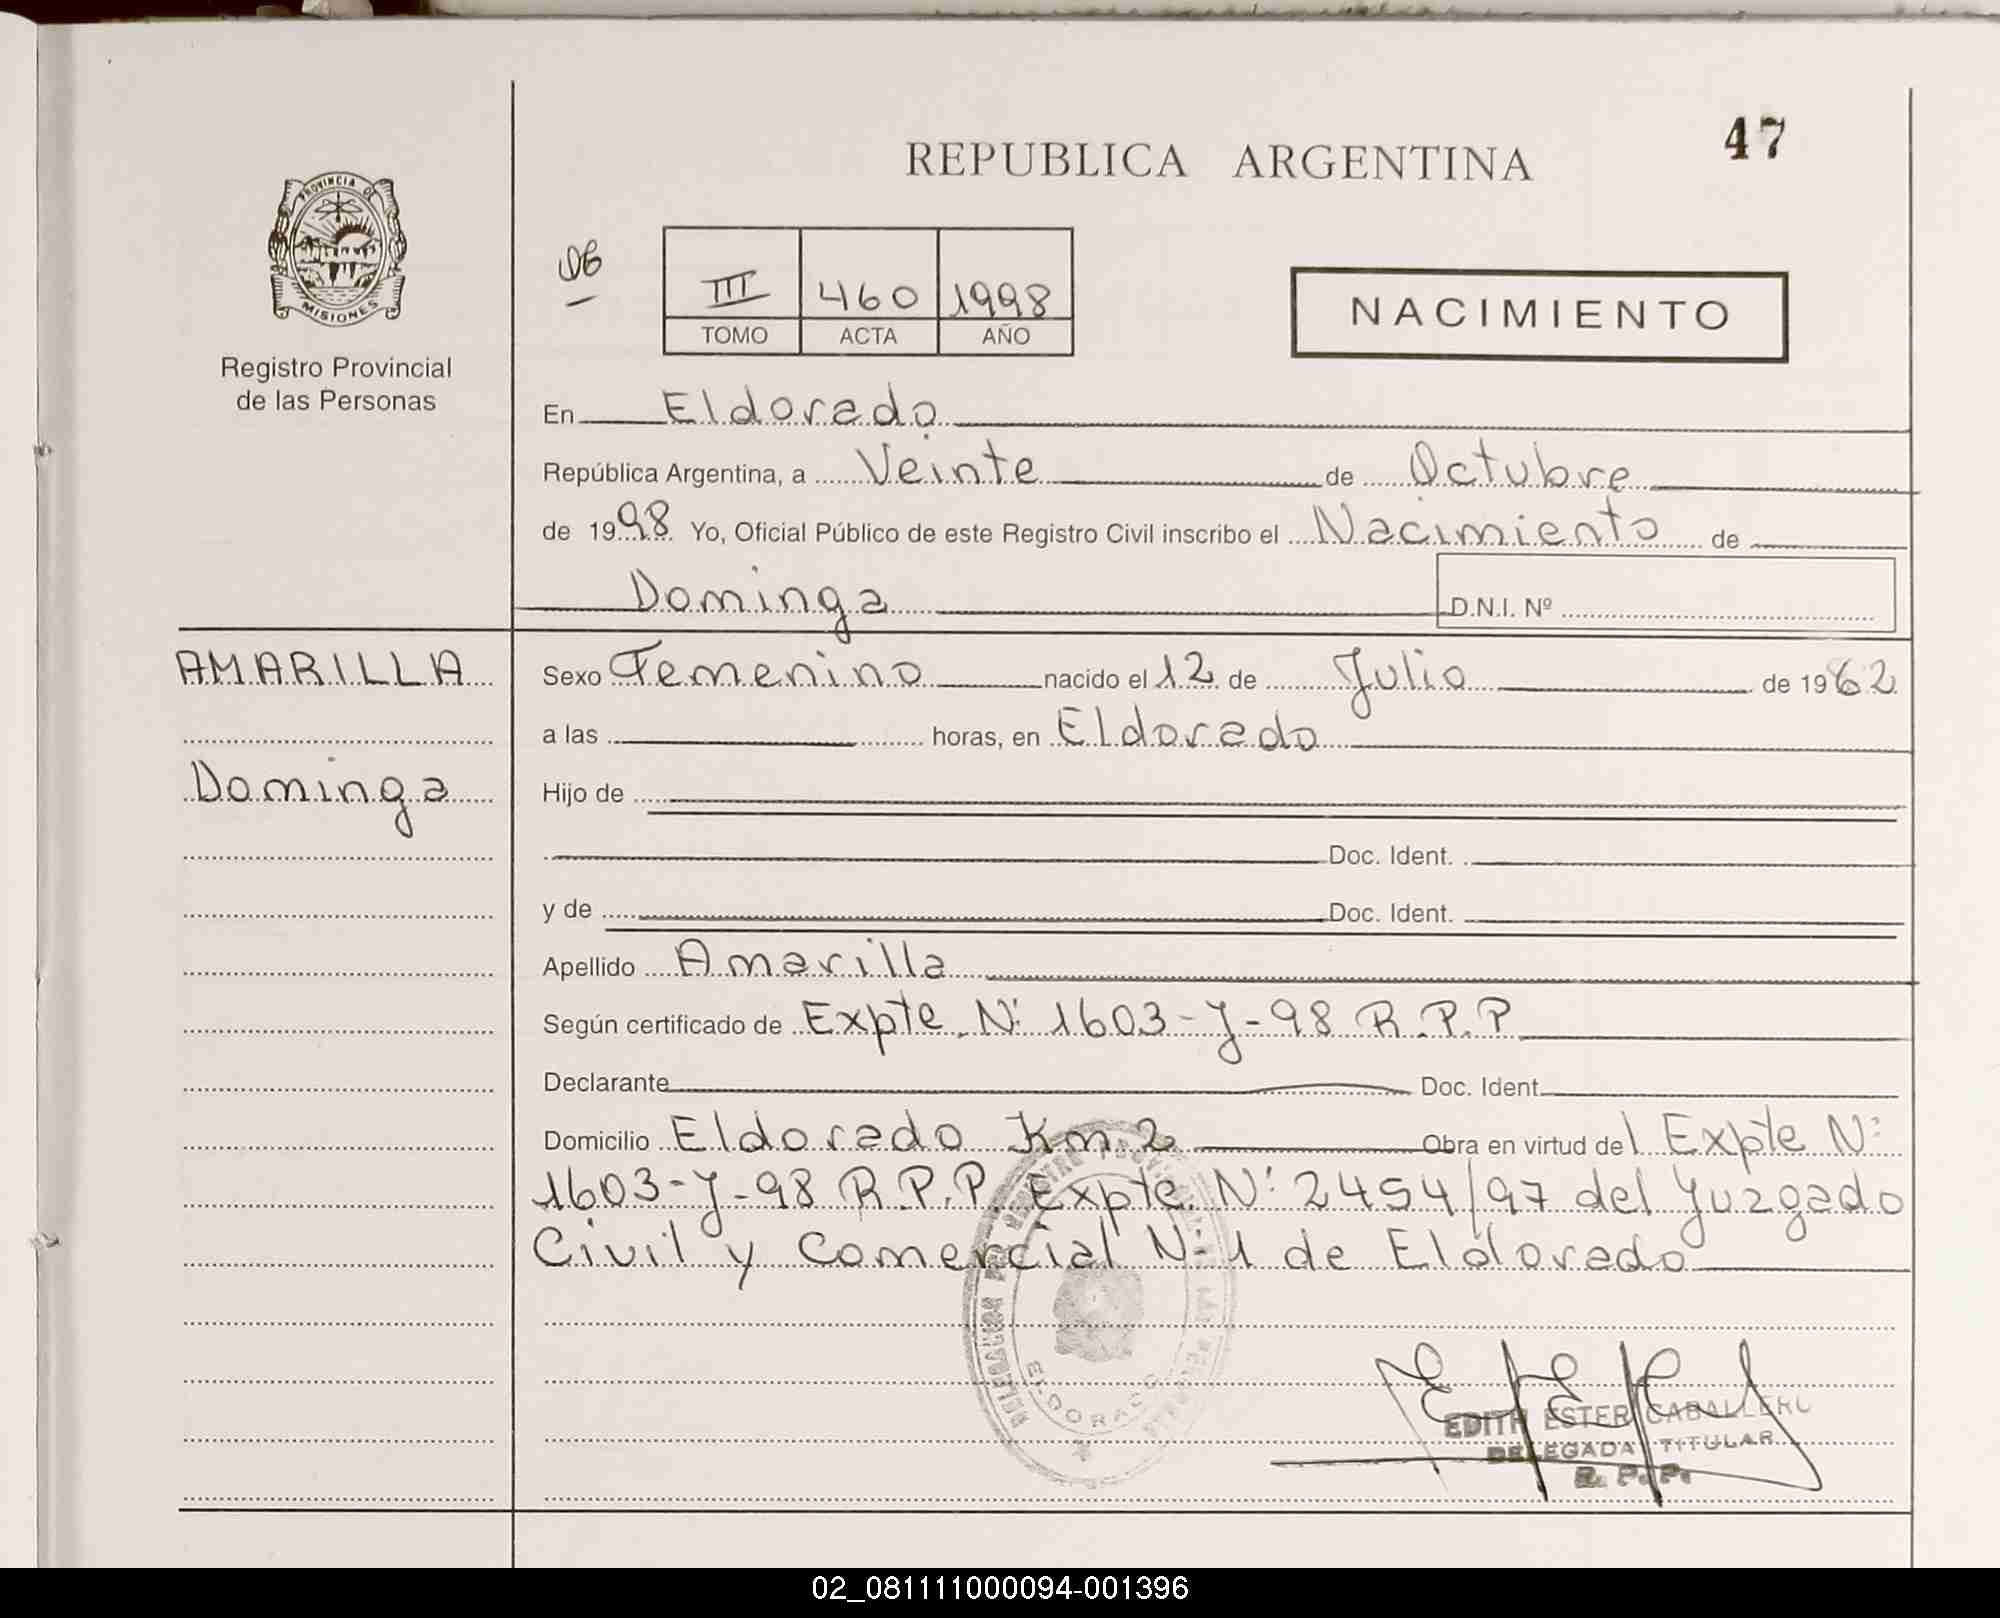 47
REPUBLICA ARGENTINA
PROVINCIA DE
MISIONES
Registro Provincial
de las Personas
III 460 1998
TOMO ACTA AÑO
NACIMIENTO
En Eldorado
República Argentina, a Veinte de Octubre
de 1998 Yo, Oficial Público de este Registro Civil inscribo el Nacimiento de
Dominga D.N.I. Nº
AMARILLA
Dominga
Sexo Femenino nacido el 12 de Julio de 1962
a las horas, en Eldorado
Hijo de
Doc. Ident.
y de Doc. Ident.
Apellido Amarilla
Según certificado de Expte. Nº 1603-J-98 R.P.P
Declarante Doc. Ident.
Domicilio Eldorado Km 2 Obra en virtud del Expte Nº
1603-J-98 R.P.P. Expte. Nº 2454/97 del Juzgado
Civil y Comercial Nº 1 de Eldorado
ELDORADO
EDITH ESTER CABALLERO
DELEGADA TITULAR
R. P. P.
02_081111000094-001396